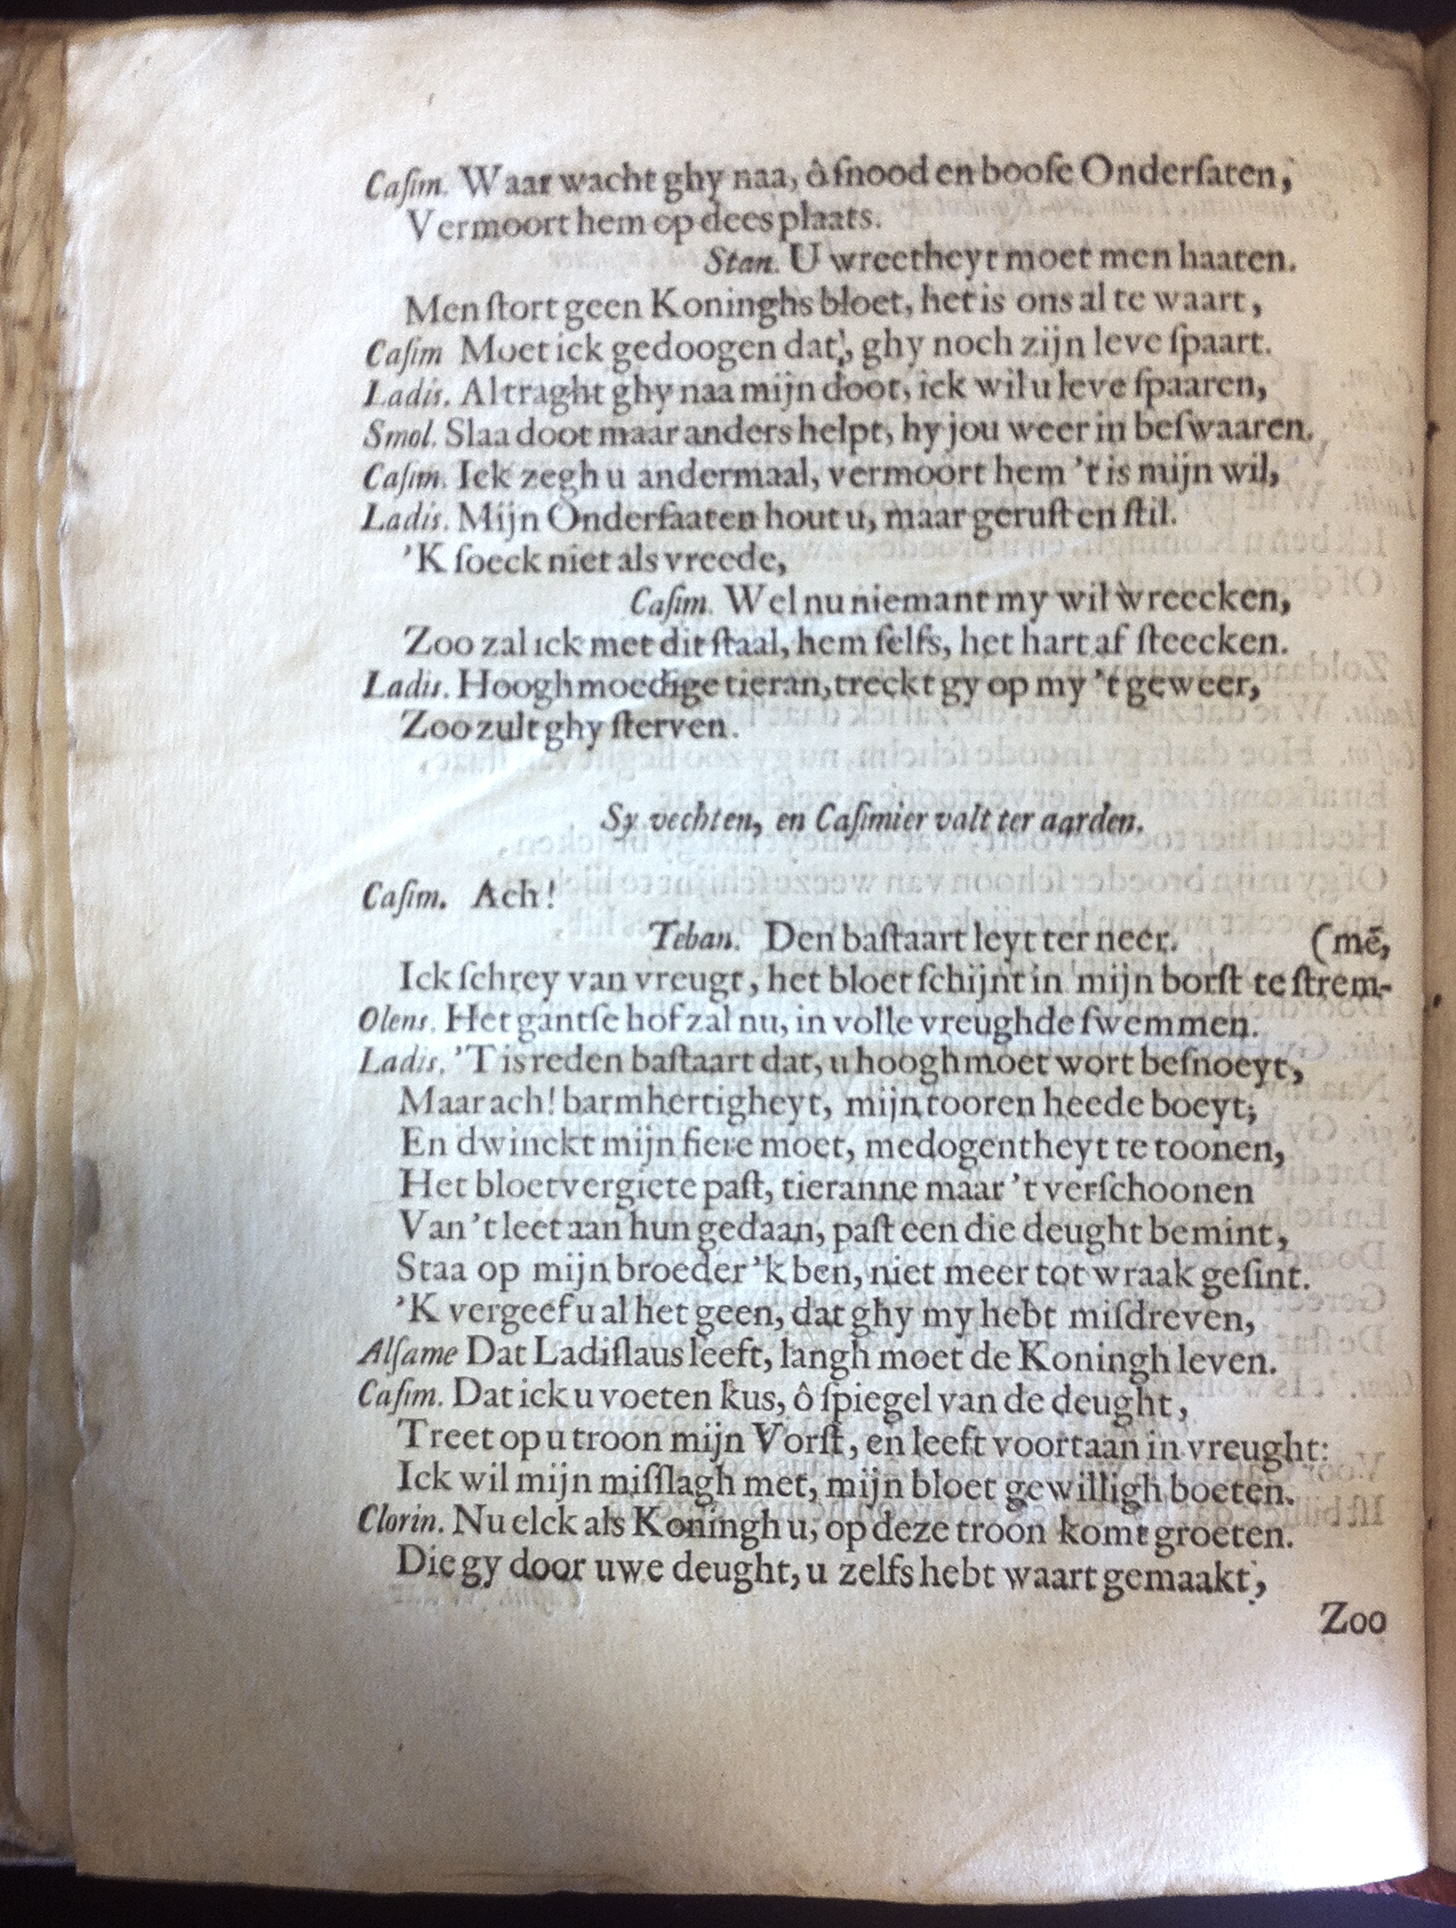 Caſim. Waar wacht ghy naa, ô ſnood en booſe Onderſaten,
Vermoort hem op dees plaats.
Stan. U wreetheyt moet men haaten.
Men ſtort geen Koninghs bloet, het is ons al te waart,
Caſim Moet ick gedoogen dat, ghy noch zijn leve ſpaart.
Ladis. Al traght ghy naa mijn doot, ick wil u leve ſpaaren,
Smol. Slaa doot maar anders helpt, hy jou weer in beſwaaren.
Caſim. Ick zegh u andermaal, vermoort hem 't is mijn wil,
Ladis. Mijn Onderſaaten hout u, maar geruſt en ſtil.
'K ſoeck niet als vreede,
Caſim. Wel nu niemant my wil wreecken,
Zoo zal ick met dit ſtaal, hem ſelfs, het hart af ſteecken.
Ladis. Hoogh moedige tieran, treckt gy op my 't geweer,
Zoo zult ghy ſterven.
Sy vechten, en Caſimier valt ter aarden.
Caſim. Ach!
Teban. Den baſtaart leyt ter neer. (mē,
Ick ſchrey van vreugt, het bloet ſchijnt in mijn borſt te ſtrem-
Olens. Het gantſe hof zal nu, in volle vreughde ſwemmen.
Ladis. 'T is reden baſtaart dat, u hooghmoet wort beſnoeyt,
Maar ach! barmhertigheyt, mijn tooren heede boeyt,
En dwinckt mijn fiere moet, medogentheyt te toonen,
Het bloetvergiete paſt, tieranne maar 't verſchoonen
Van 't leet aan hun gedaan, paſt een die deught bemint,
Staa op mijn broeder 'k ben, niet meer tot wraak geſint.
'K vergeef u al het geen, dat ghy my hebt miſdreven,
Alſame Dat Ladiſlaus leeft, langh moet de Koningh leven.
Caſim. Dat ick u voeten kus, ô ſpiegel van de deught,
Treet op u troon mijn Vorſt, en leeft voortaan in vreught:
Ick wil mijn miſſlagh met, mijn bloet gewilligh boeten.
Clorin. Nu elck als Koningh u, op deze troon komt groeten.
Die gy door uwe deught, u zelfs hebt waart gemaakt,
Zoo